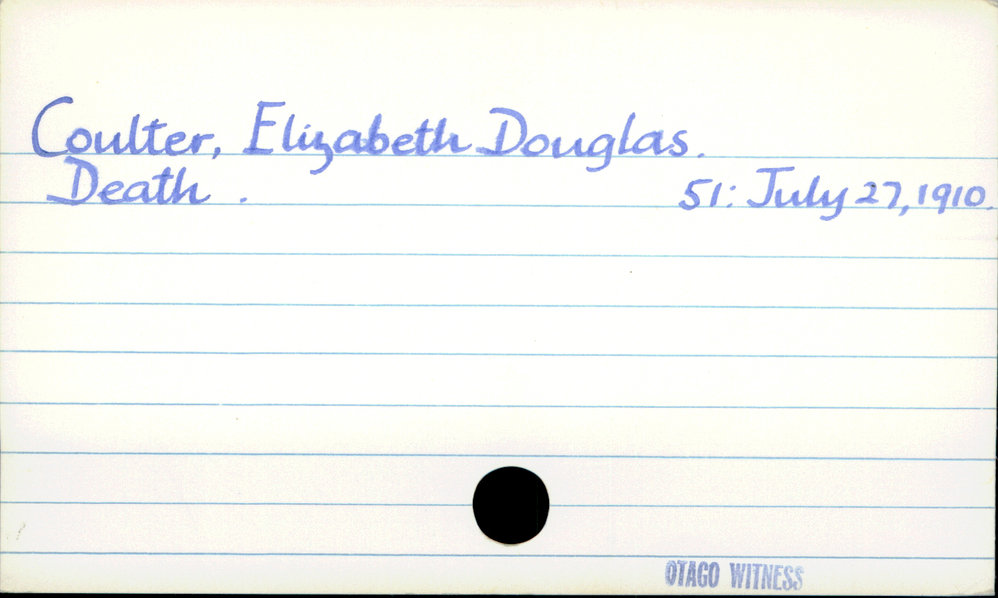 Coulter, Elizabeth Douglas.
Death . 51: July 27, 1910.
OTAGO WITNESS